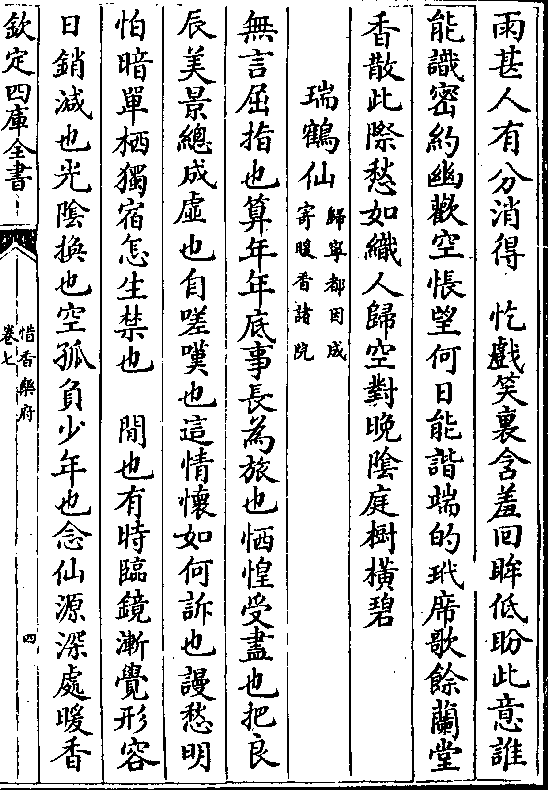 雨甚人有分消得　忔戲笑裏含羞回眸低盼此意誰
能識密約幽歡空悵望何日能諧端的玳席歌餘蘭堂
香散此際愁如織人歸空對晚陰庭樹橫碧
瑞鶴仙歸寧都因成
寄暖香諸院
無言屈指也算年年底事長為旅也恓惶受盡也把良
辰美景總成虛也自嗟嘆也這情懷如何訴也謾愁明
怕暗單栖獨宿怎生禁也　閒也有時臨鏡漸覺形容
日銷減也光陰換也空孤負少年也念仙源深處暖香
欽定四庫全書
惜香樂府
卷七
四